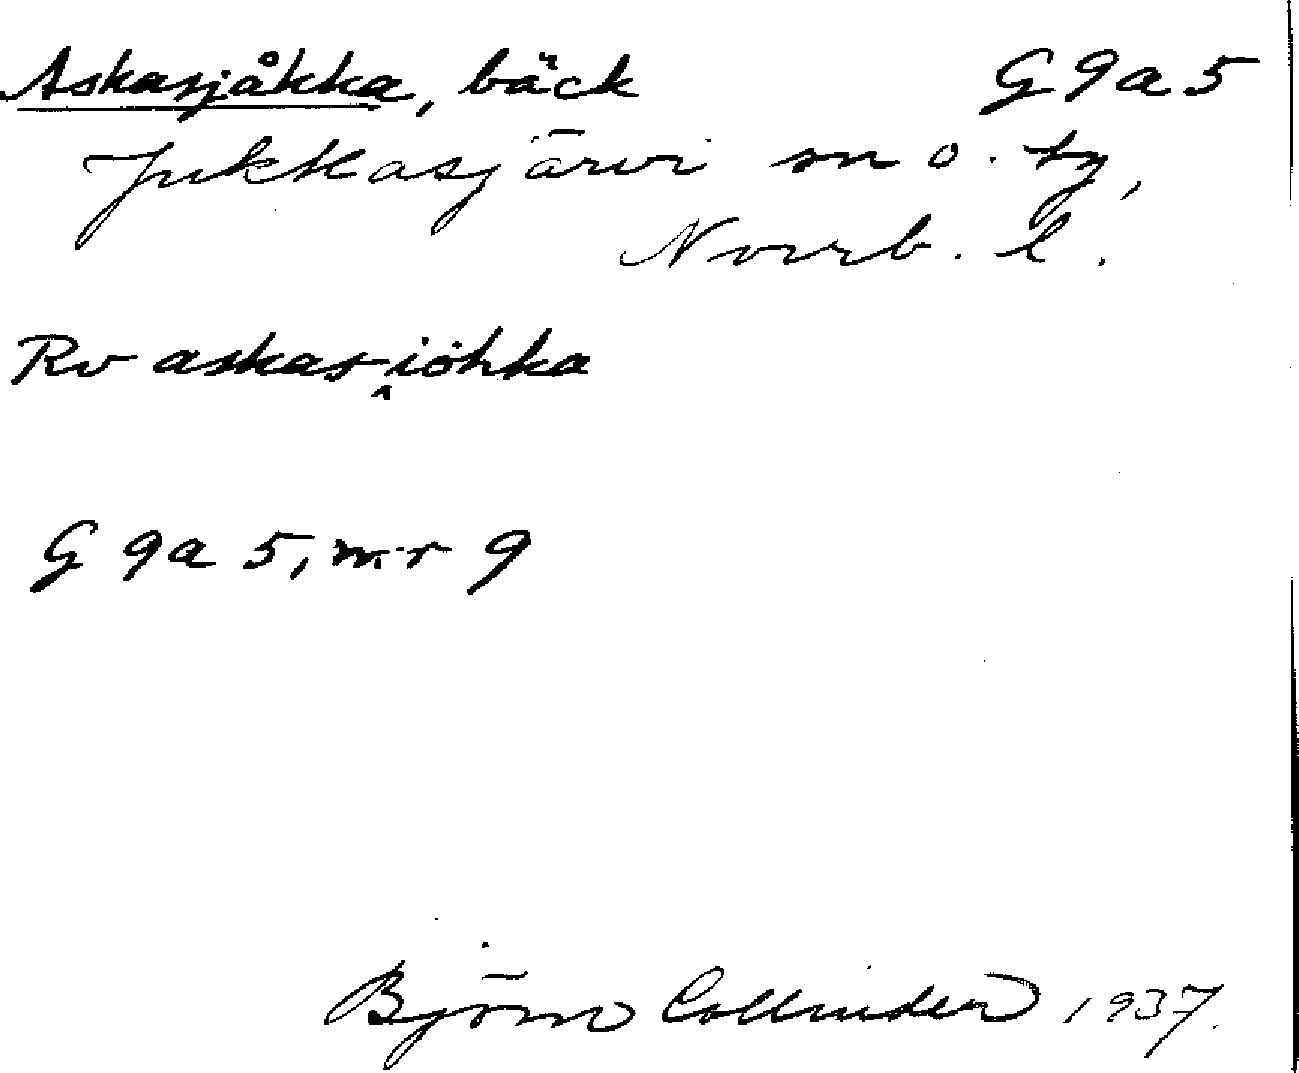 Askasjåkka, bäck G 9 a 5
Jukkasjärvi sn o. tg,
Norrb. l.
Rv askas-iöhka
G 9 a 5, nr 9
Björn Collinder 1937.